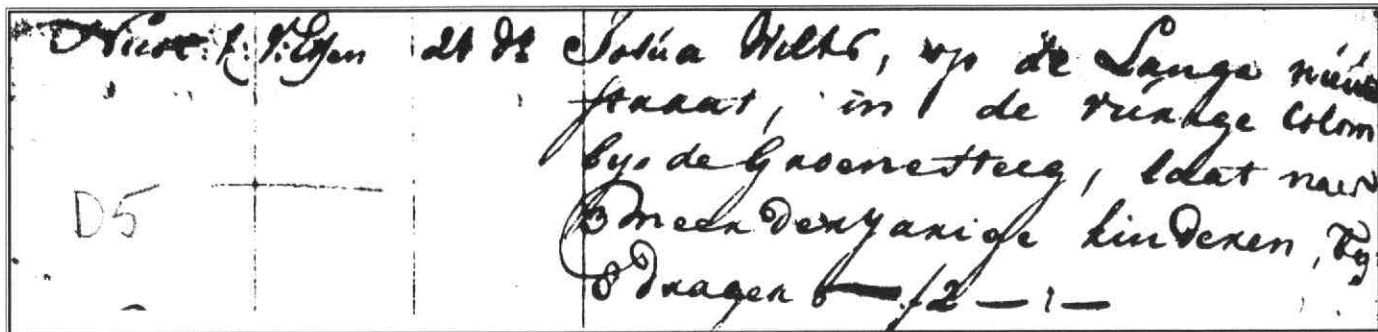 Nicol: K: V: Essen 24 dt Josúa Wilts, op de Lange nieúw
straat, in de vúrige Colom
bys de Groenesteeg, laat na
3 meerderjarige kinderen,
8 dragers f2 — 1 —
D5